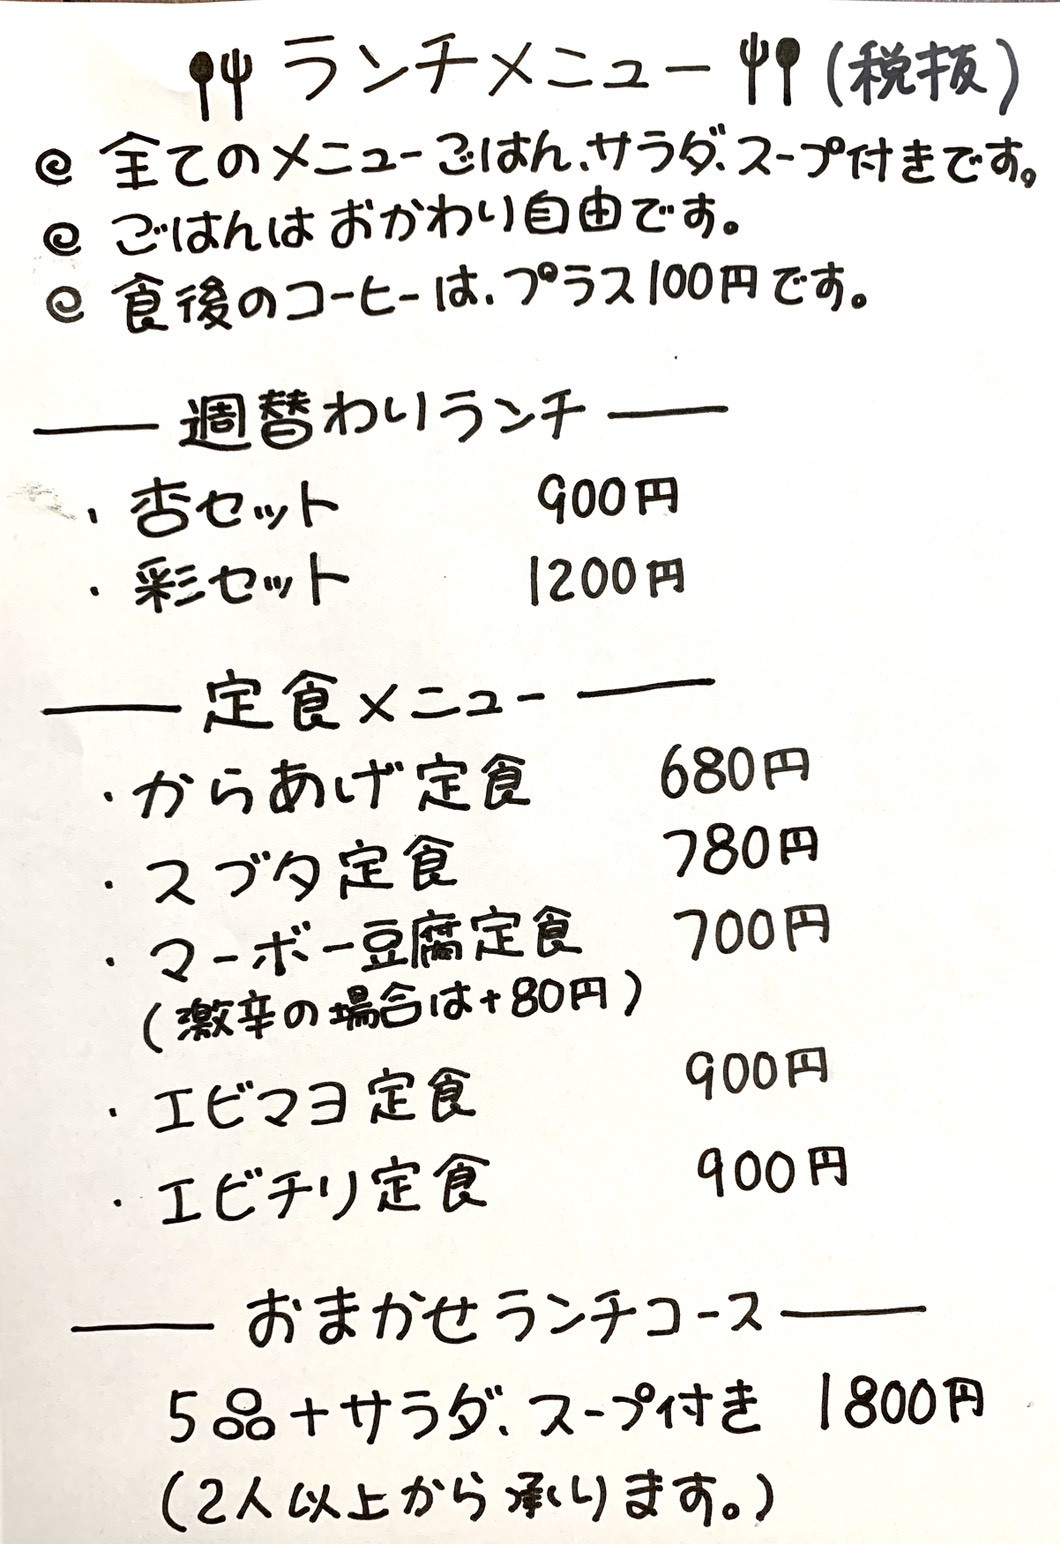 ランチメニュー (税抜)
全てのメニューごはん、サラダ、スープ付きです。
ごはんはおかわり自由です。
食後のコーヒーは、プラス100円です。
週替わりランチ
・杏セット 900円
・彩セット 1200円
定食メニュー
・からあげ定食 680円
・スブタ定食 780円
・マーボー豆腐定食 700円
(激辛の場合は+80円)
・エビマヨ定食 900円
・エビチリ定食 900円
おまかせランチコース
5品+サラダ、スープ付き 1800円
(2人以上から承ります。)